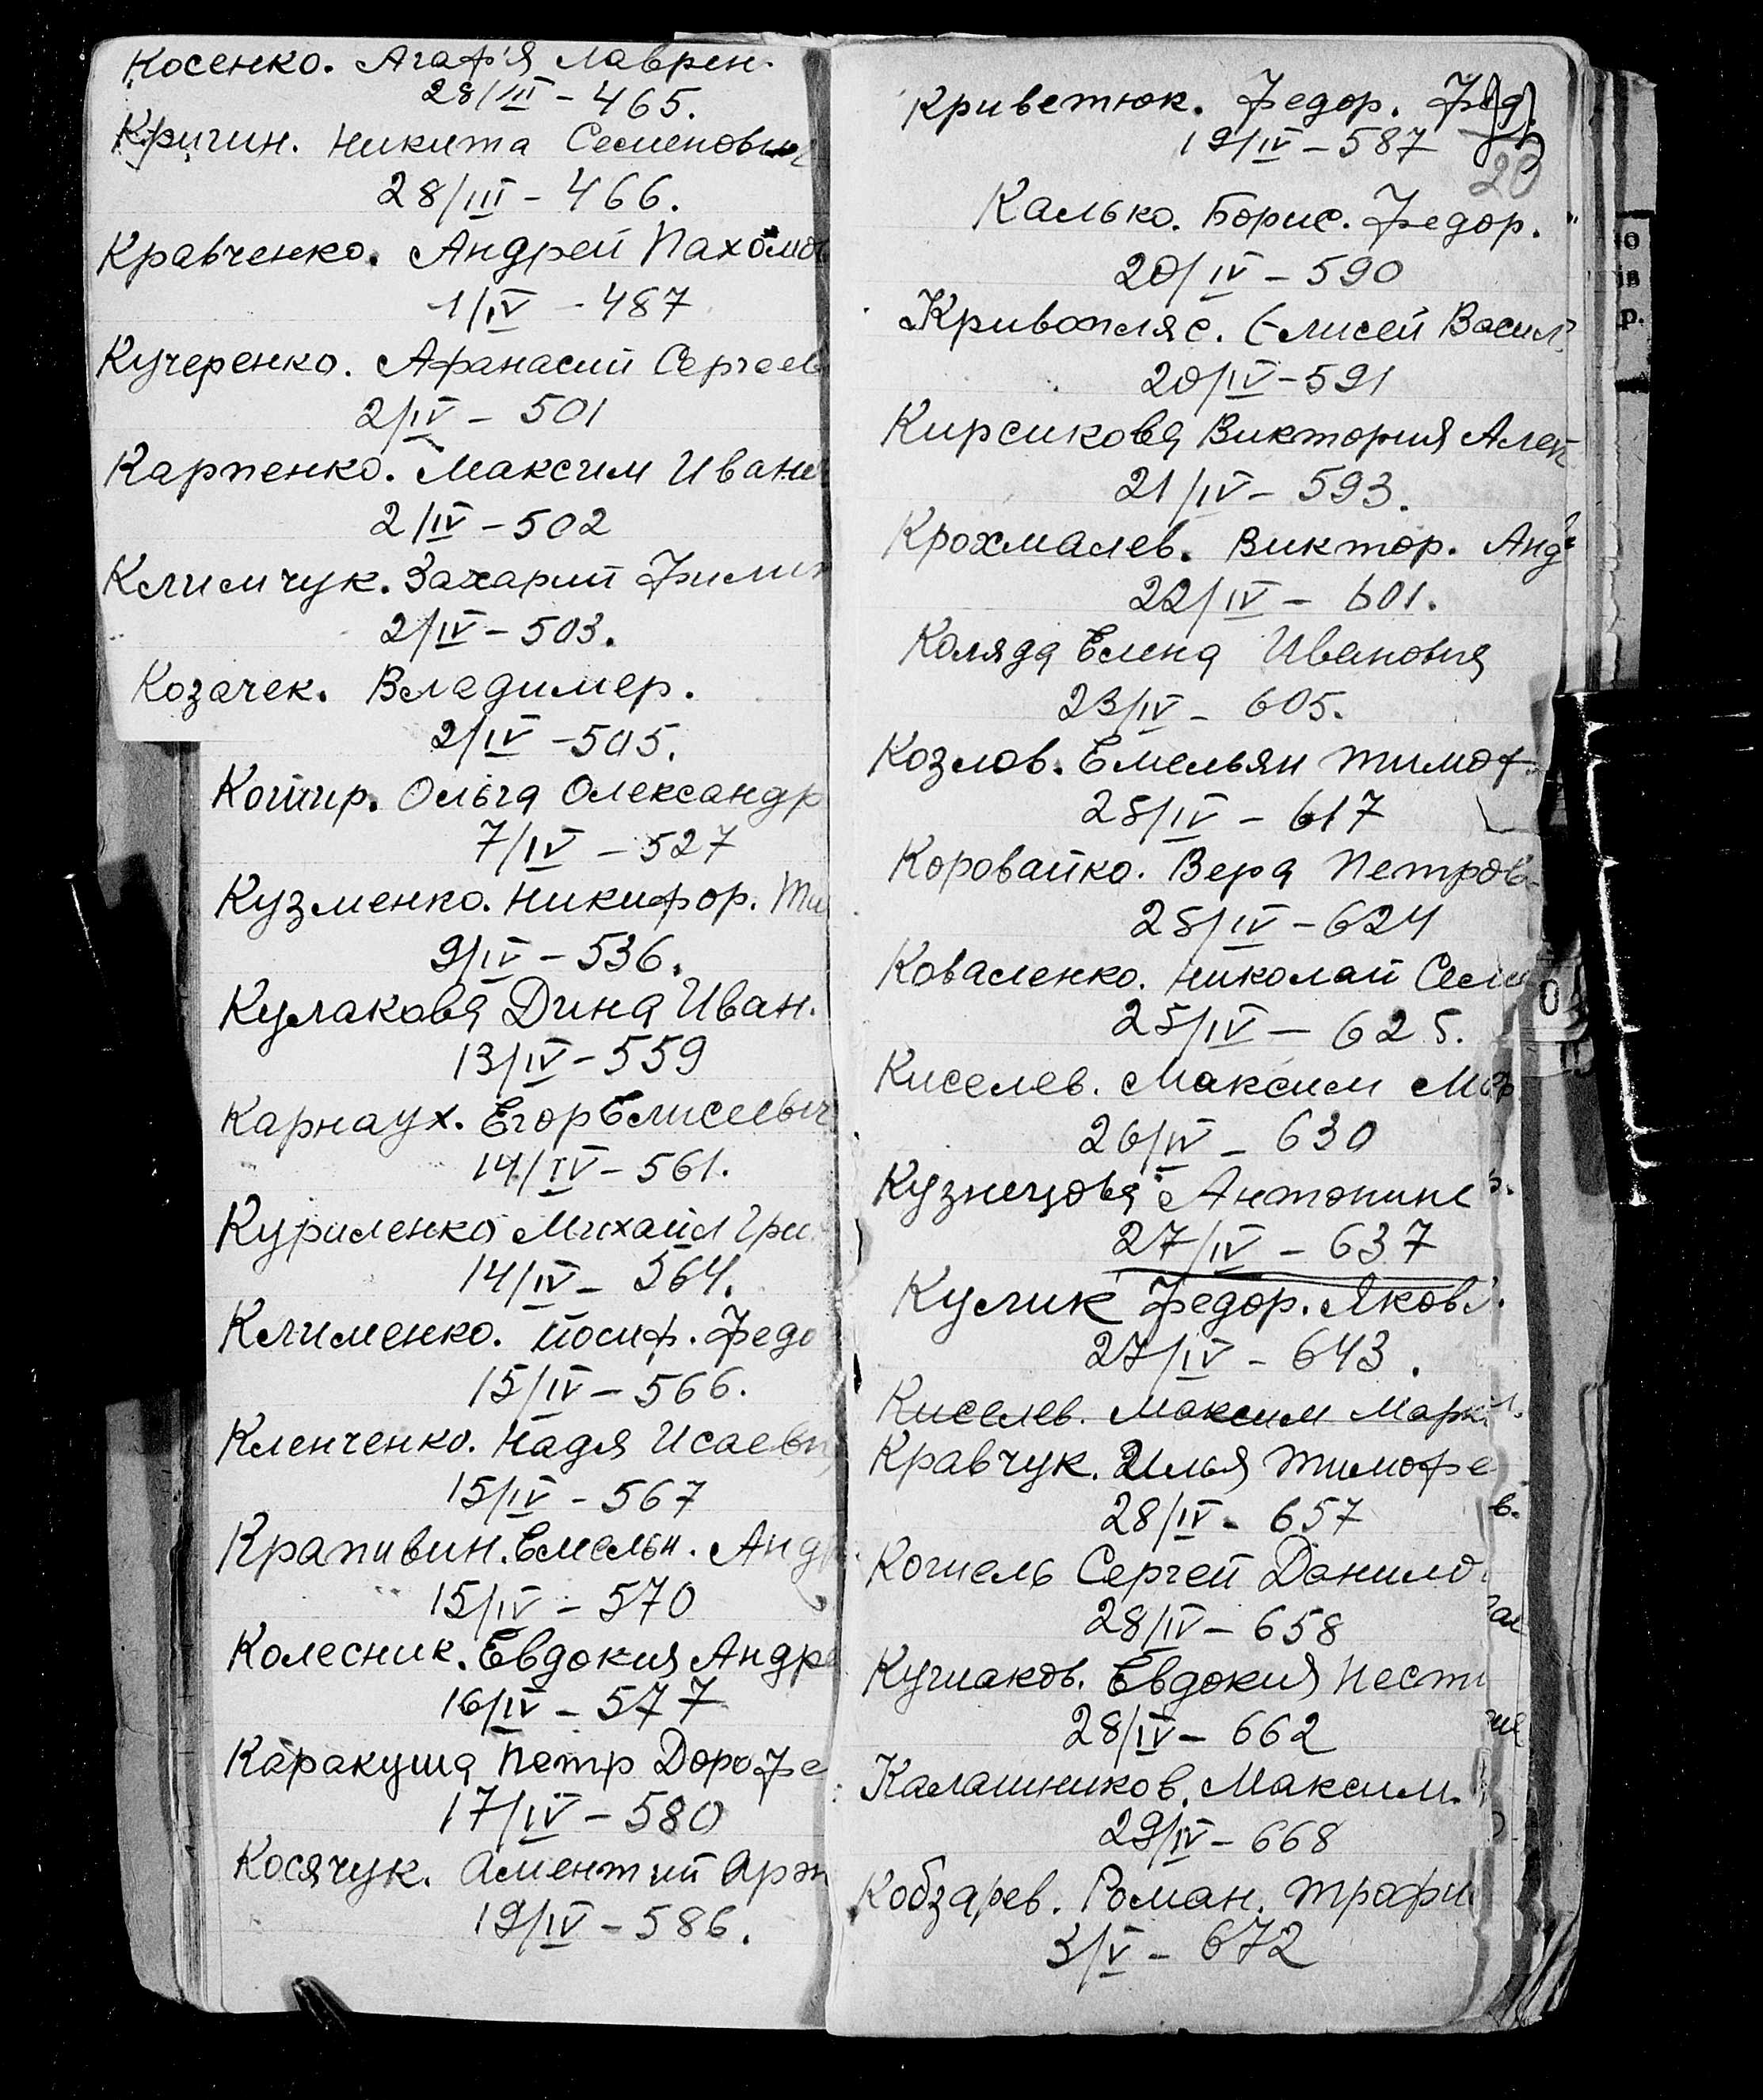 Косенко. Агаф'я Лаврен.
28/III - 465.
Кричин. Никита Семенович
28/III - 466.
Кравченко. Андрей Пахомов
1/IV - 487
Кучеренко. Афанасий Сергеев
2/IV - 501
Карпенко. Максим Иванов
2/IV - 502
Климчук. Захарий Филип
2/IV - 503.
Козачек. Владимер.
2/IV - 505.
Ольга Олександр
7/IV - 527
Кузменко. Никифор. Ти
9/IV - 536.
Кулакова Дина Иван.
13/IV - 559
Карнаух. Егор Елисеевич
14/IV - 561.
Куриленко Михайл Гри
14/IV - 564.
Клименко. Йосиф. Федо
15/IV - 566.
Кленченко. Надя Исаевн
15/IV - 567
Крапивин. Емельн. Андр
15/IV - 570
Колесник. Евдокия Андре
16/IV - 577
Каракуша Петр Дорофе
17/IV - 580
Косячук. Аментий Арэн
19/IV - 586.
Криветюк. Федор. Фед.
19/IV - 587
20
Калько. Борис. Федор.
20/IV - 590
Кривопляс. Елисей Васил.
20/IV - 591
Кирсикова Виктория Алек
21/IV - 593.
Крохмалев. Виктор. Анд
22/IV - 601.
Коляда Елена Ивановна
23/IV - 605.
Козлов. Емельян Тимоф.
25/IV - 617
Коровайко. Вера Петров
25/IV - 624
Коваленко. Николай Семе
25/IV - 625.
Киселев. Максим Мар
26/IV - 630
Кузнецова Антонине
27/IV - 637
Кулик Федор. Яковл.
27/IV - 643.
Киселев. Максим Марк
Кравчук. Илья Тимофе
28/IV - 657
Кошель Сергей Данило
28/IV - 658
Кушаков. Евдокия Нест
28/IV - 662
Калашников. Максим.
29/IV - 668
Кобзарев. Роман. Трофи
3/V - 672